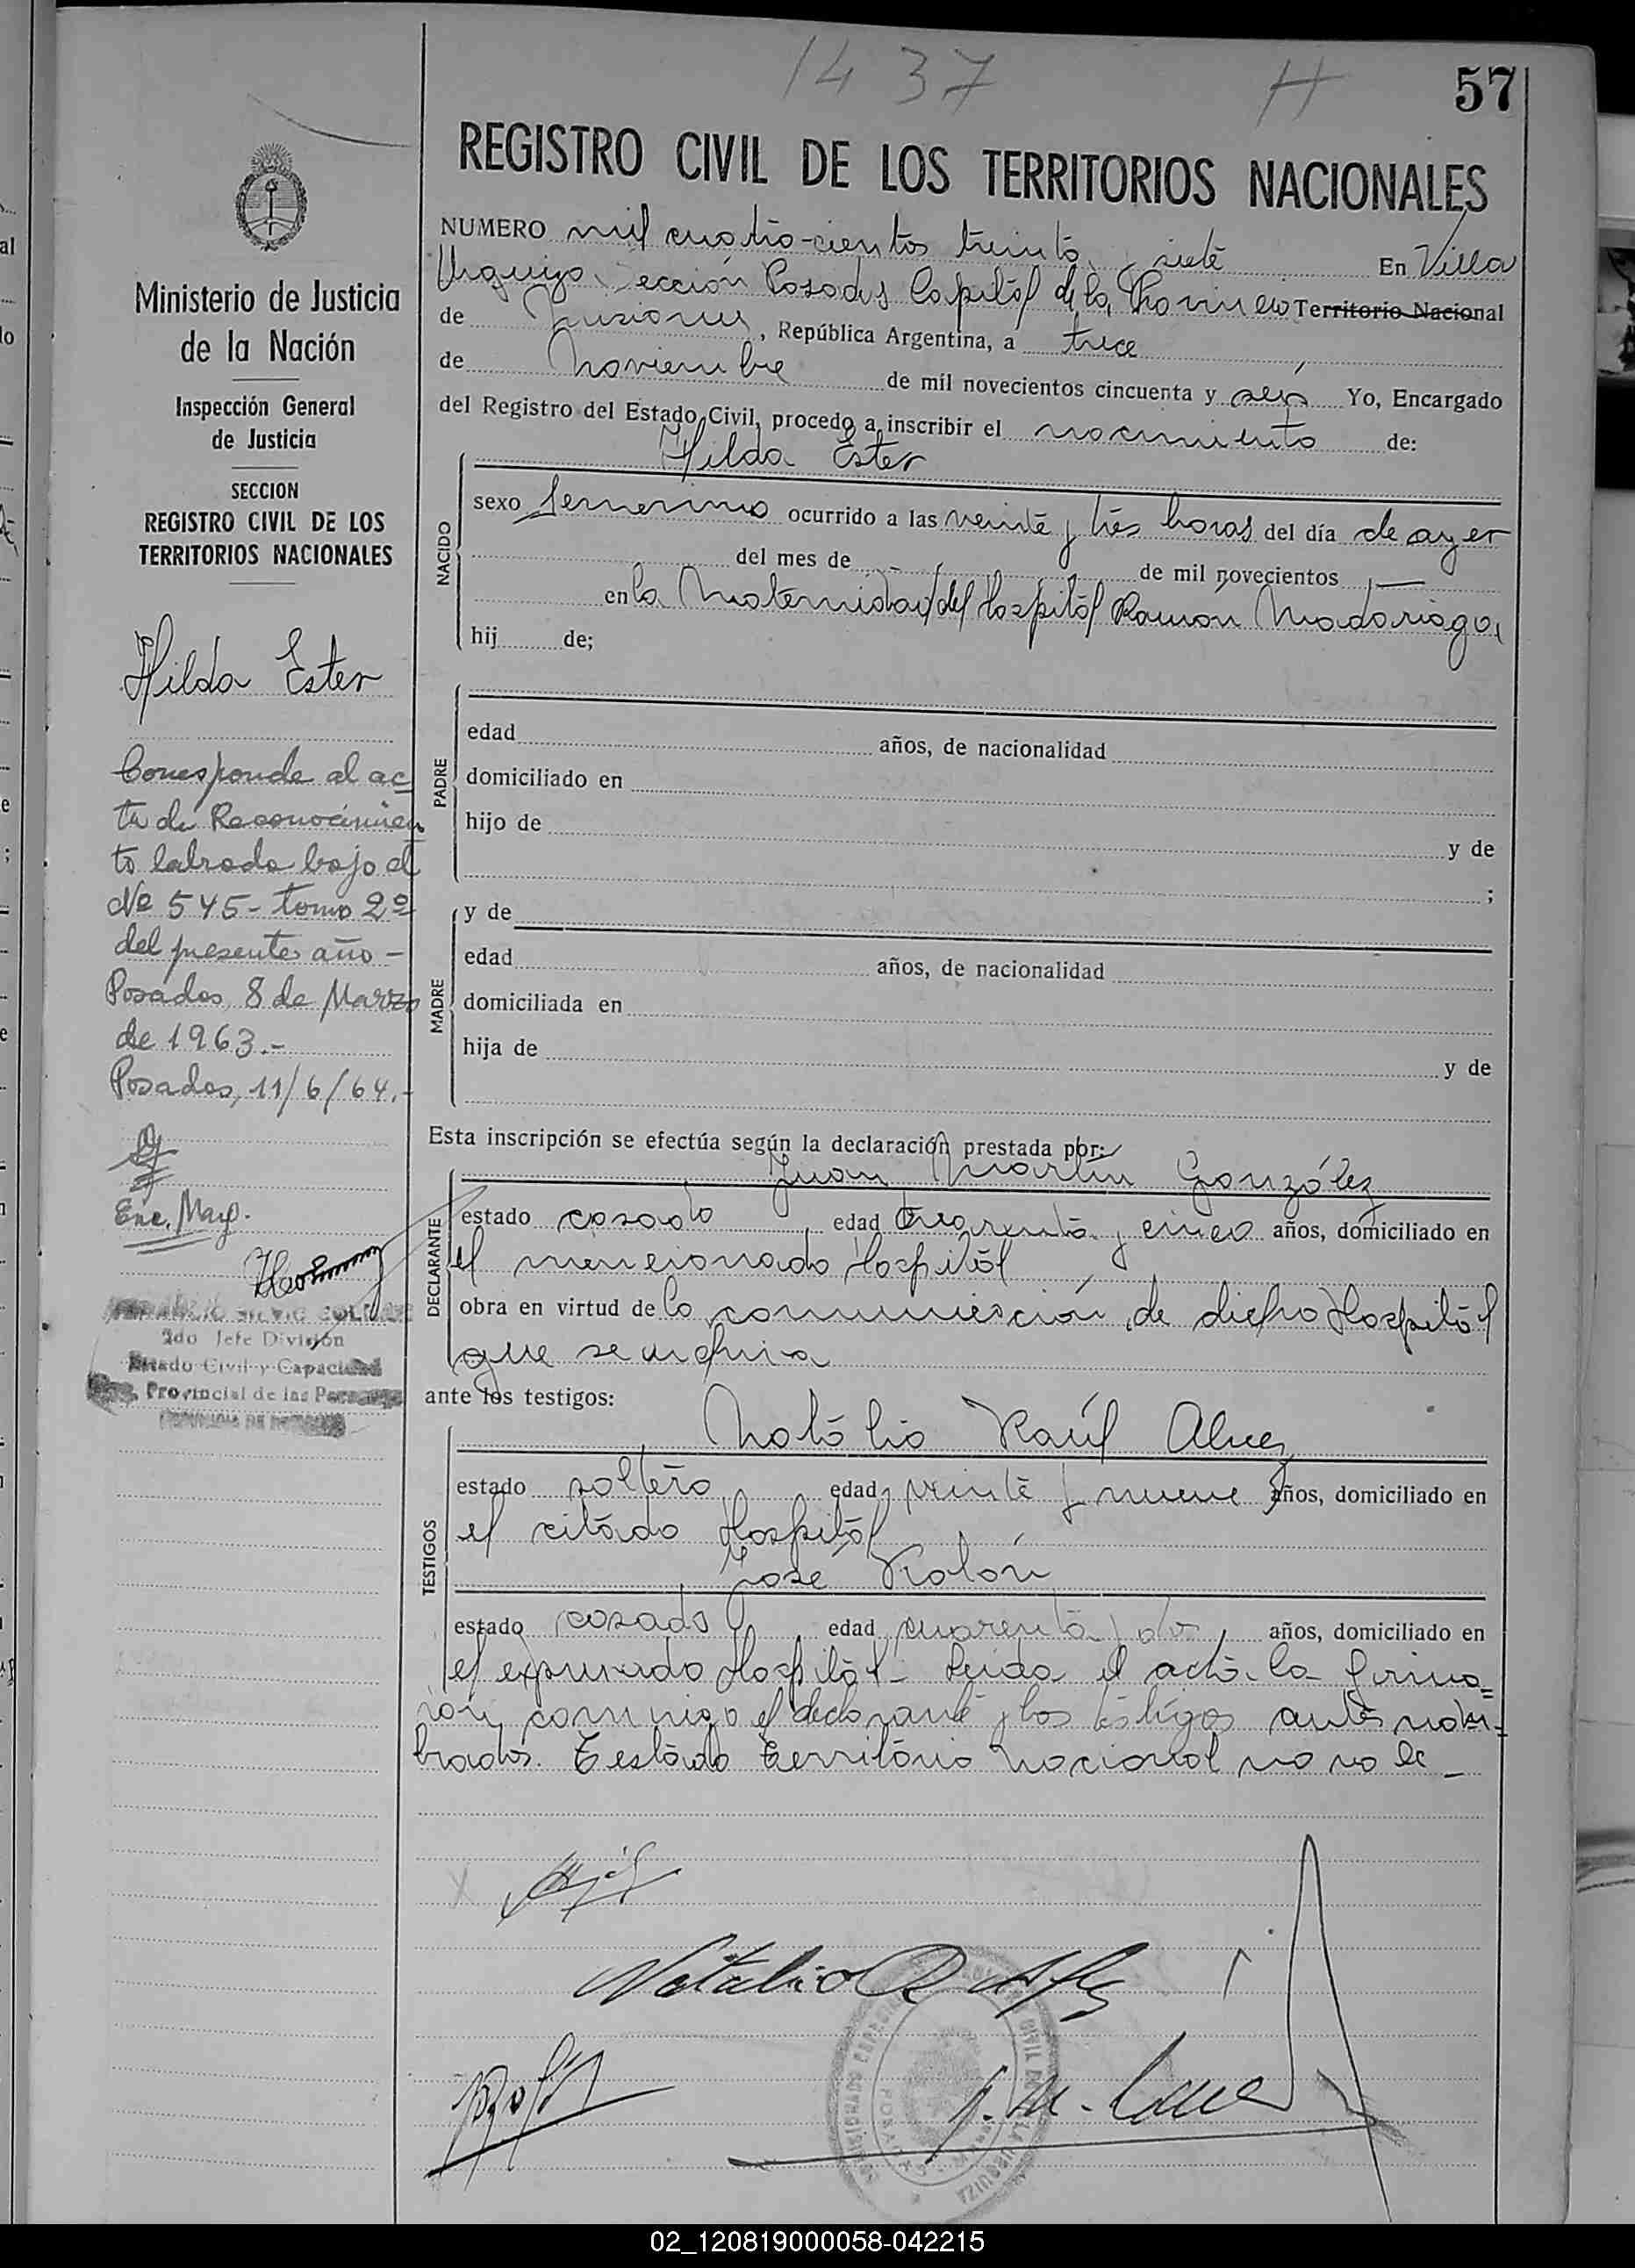 1437 H 57
REGISTRO CIVIL DE LOS TERRITORIOS NACIONALES
NUMERO mil cuatro-cientos treinta y siete En Villa
Urquiza Sección Posadas Capital de la Provincia Territorio Nacional
de Misiones, República Argentina, a trece
de Noviembre de mil novecientos cincuenta y seis Yo, Encargado
del Registro del Estado Civil, procedo a inscribir el nacimiento de:
Hilda Ester
NACIDO
sexo femenino ocurrido a las veinte y tres horas del día de ayer
del mes de - de mil novecientos -
en la Maternidad del Hospital Ramón Madariaga,
hij de;
PADRE
edad años, de nacionalidad
domiciliado en
hijo de
y de
;
MADRE
y de
edad años, de nacionalidad
domiciliada en
hija de
y de
Esta inscripción se efectúa según la declaración prestada por:
Juan Martín González
DECLARANTE
estado casado edad cuarenta y cinco años, domiciliado en
el mencionado Hospital
obra en virtud de la comunicación de dicho Hospital
que se archiva
ante los testigos:
Natálio Raúl Alvez
TESTIGOS
estado soltero edad veinte y nueve años, domiciliado en
el citado Hospital
José Rolón
estado casado edad cuarenta y dos años, domiciliado en
el expresado Hospital- Leída el acta la firma=
ron conmigo el declarante y los testigos antes nom=
brados. Testado Territorio Nacional no vale-
Natalio R.
Ministerio de Justicia
de la Nación
Inspección General
de Justicia
SECCION
REGISTRO CIVIL DE LOS
TERRITORIOS NACIONALES
Hilda Ester
Corresponde al ac
ta de Reconocimien
to labrada bajo el
Nº 545- tomo 2º
del presente año -
Posadas 8 de Marzo
de 1963.-
Posadas, 11/6/64.-
Enc. May.
2do Jefe División
Estado Civil y Capacidad
Provincial de las Personas
02_120819000058-042215